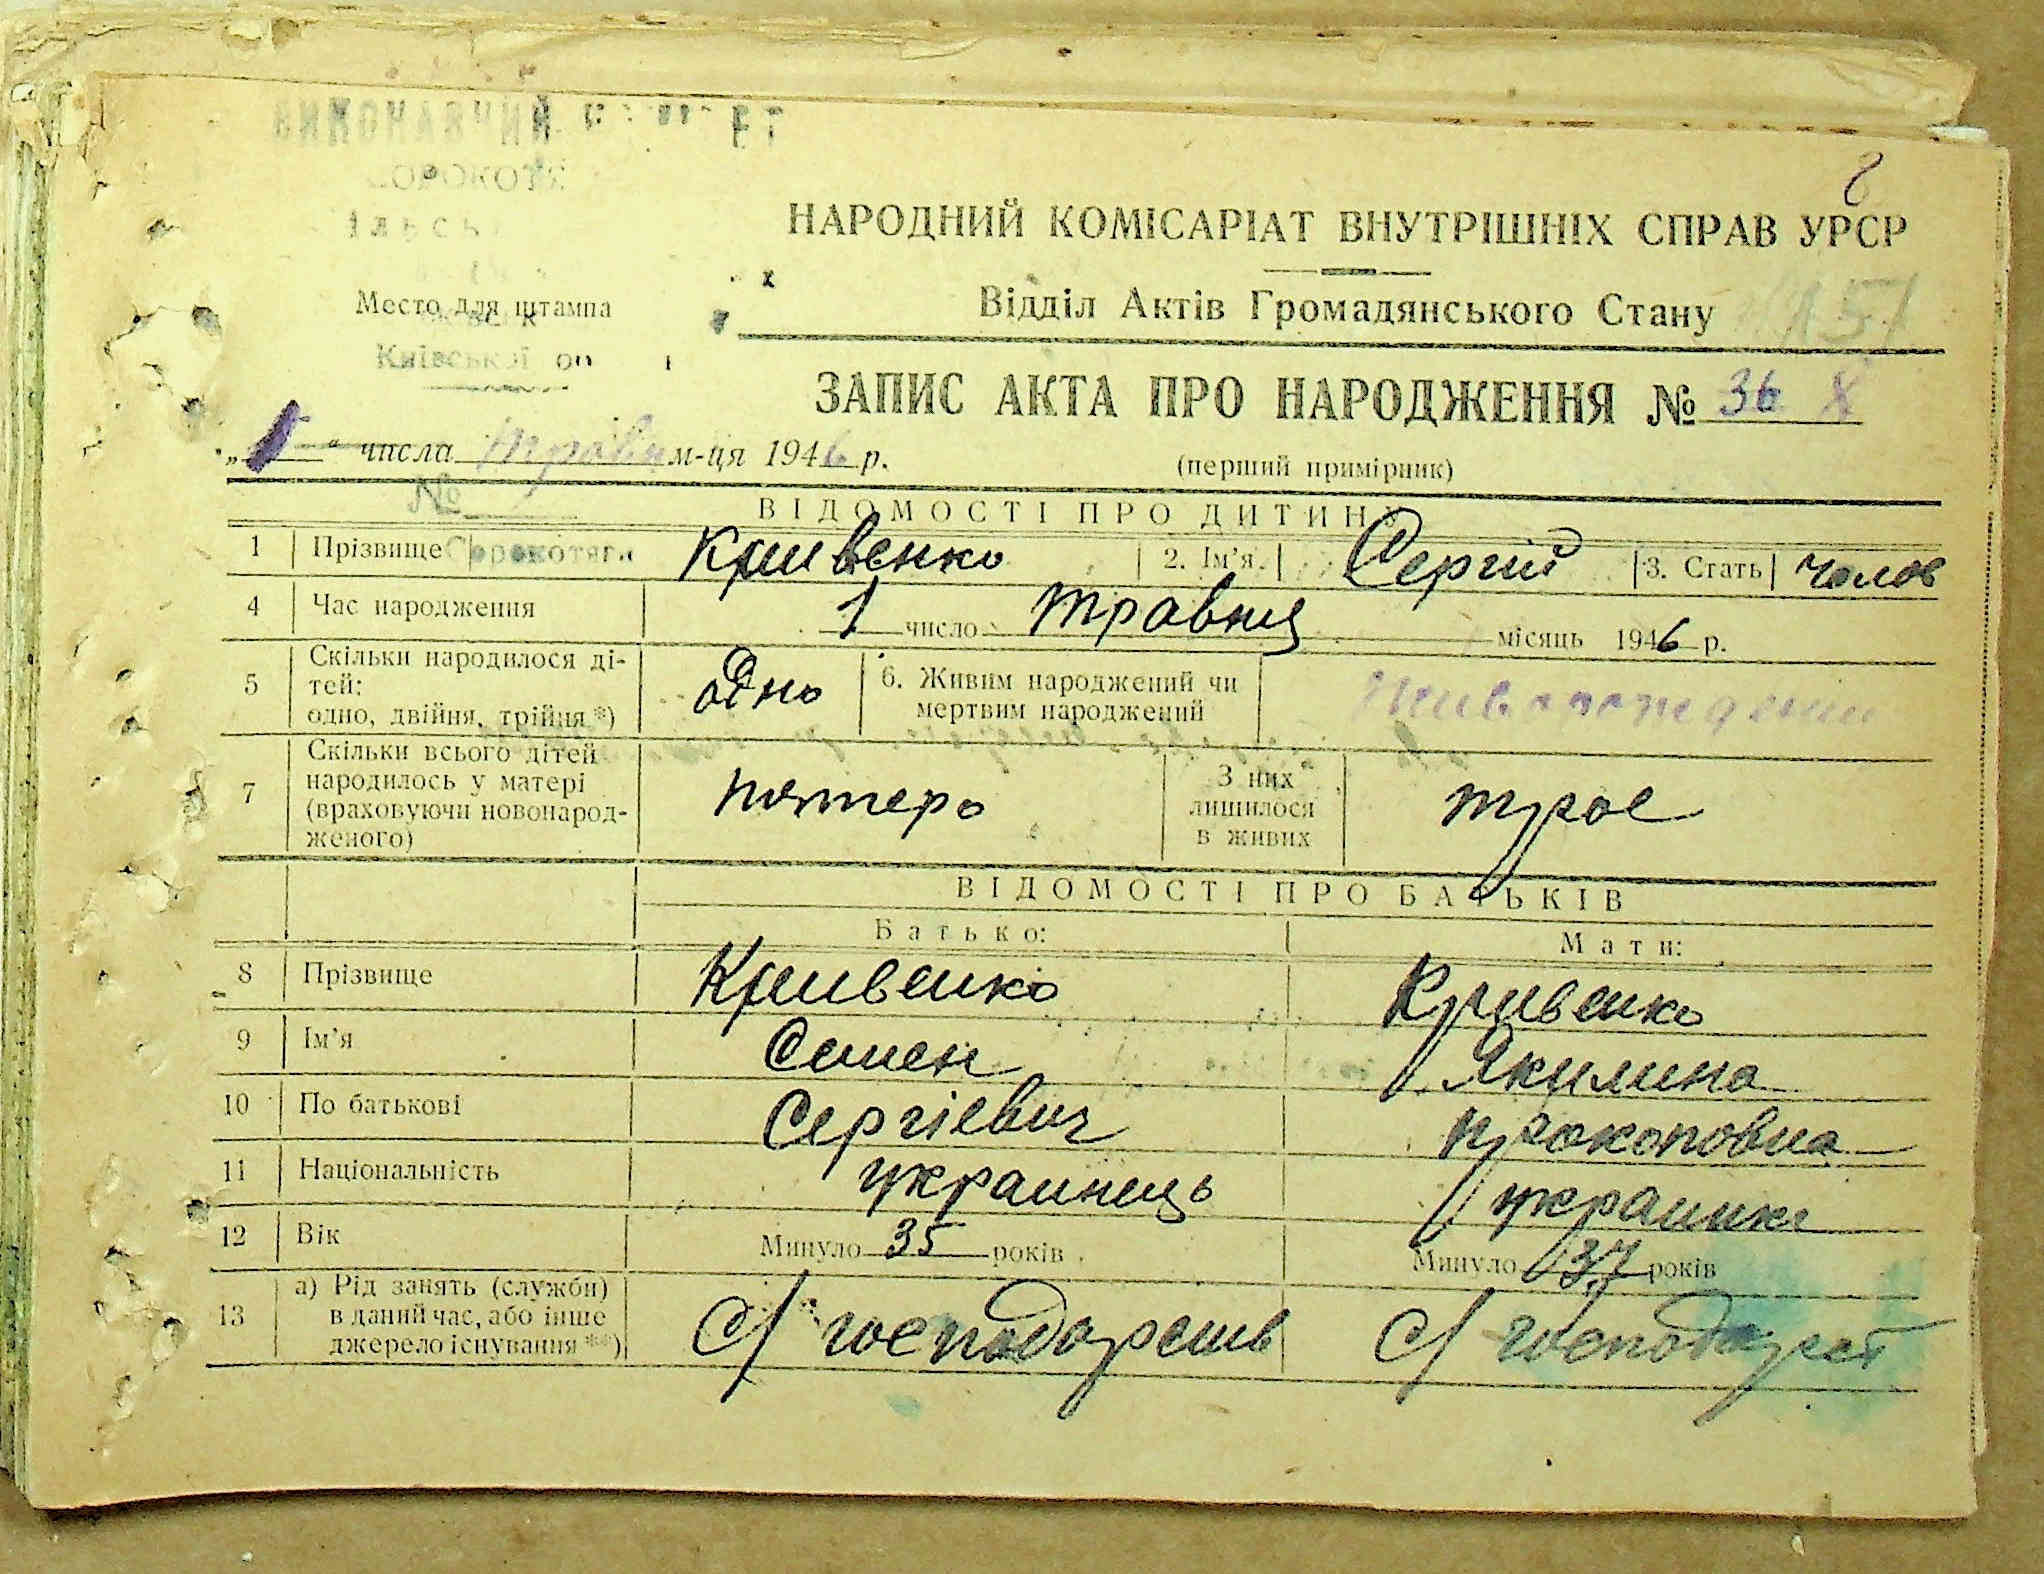 8
НАРОДНИЙ КОМІСАРІАТ ВНУТРІШНІХ СПРАВ УРСР
Відділ Актів Громадянського Стану
151
Место для штампа
Київської
ЗАПИС АКТА ПРО НАРОДЖЕННЯ № 36
„ “ числа травня м-ця 1946 р.
(перший примірник)
№
ВІДОМОСТІ ПРО ДИТИНУ
1 Прізвище Кривенко 2. Ім'я Сергій 3. Стать чолов
4 Час народження 1 число травня місяць 1946 р.
5 Скільки народилося ді-
тей:
одно, двійня, трійня *) одно 6. Живим народжений чи
мертвим народжений
7 Скільки всього дітей
народилось у матері
(враховуючи новонарод-
женого) пятеро З них
лишилося
в живих трое
ВІДОМОСТІ ПРО БАТЬКІВ
Батько: Мати:
8 Прізвище Кривенко Кривенко
9 Ім'я Семен Якилина
10 По батькові Сергіевич Прокоповна
11 Національність украинець украинка
12 Вік Минуло 35 років Минуло 37 років
13 а) Рід занять (служби)
в даний час, або інше
джерело існування **) с/
с/